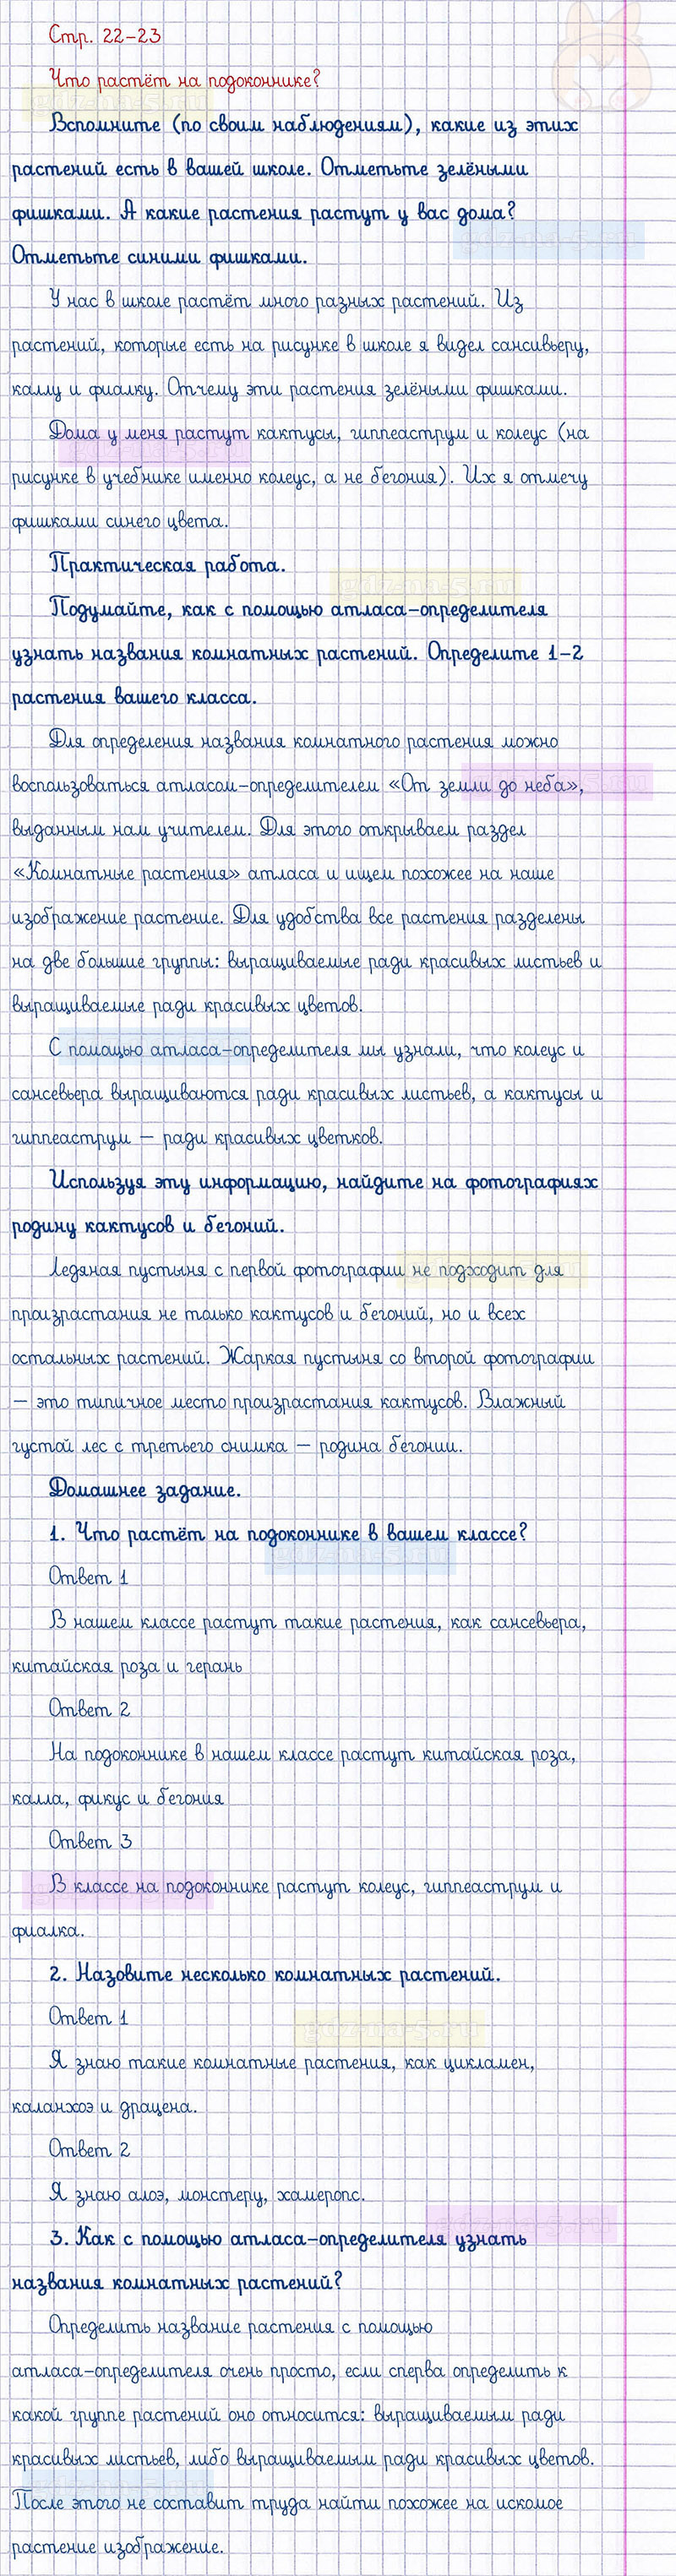 Стр. 22-23
Что растёт на подоконнике?
Вспомните (по своим наблюдениям), какие из этих
растений есть в вашей школе. Отметьте зелёными
фишками. А какие растения растут у вас дома?
Отметьте синими фишками.
У нас в школе растёт много разных растений. Из
растений, которые есть на рисунке в школе я видел сансивьеру,
каллу и фиалку. Отчему эти растения зелёными фишками.
Дома у меня растут кактусы, гиппеаструм и колеус (на
рисунке в учебнике именно колеус, а не бегония). Их я отмечу
фишками синего цвета.
Практическая работа.
Подумайте, как с помощью атласа-определителя
узнать названия комнатных растений. Определите 1-2
растения вашего класса.
Для определения названия комнатного растения можно
воспользоваться атласом-определителем «От земли до неба»,
выданным нам учителем. Для этого открываем раздел
«Комнатные растения» атласа и ищем похожее на наше
изображение растение. Для удобства все растения разделены
на две большие группы: выращиваемые ради красивых листьев и
выращиваемые ради красивых цветов.
С помощью атласа-определителя мы узнали, что колеус и
сансевьера выращиваются ради красивых листьев, а кактусы и
гиппеаструм – ради красивых цветков.
Используя эту информацию, найдите на фотографиях
родину кактусов и бегоний.
Ледяная пустыня с первой фотографии не подходит для
произрастания не только кактусов и бегоний, но и всех
остальных растений. Жаркая пустыня со второй фотографии
– это типичное место произрастания кактусов. Влажный
густой лес с третьего снимка – родина бегонии.
Домашнее задание.
1. Что растёт на подоконнике в вашем классе?
Ответ 1
В нашем классе растут такие растения, как сансевьера,
китайская роза и герань
Ответ 2
На подоконнике в нашем классе растут китайская роза,
калла, фикус и бегония
Ответ 3
В классе на подоконнике растут колеус, гиппеаструм и
фиалка.
2. Назовите несколько комнатных растений.
Ответ 1
Я знаю такие комнатные растения, как цикламен,
каланхоэ и драцена.
Ответ 2
Я знаю алоэ, монстеру, хамеропс.
3. Как с помощью атласа-определителя узнать
названия комнатных растений?
Определить название растения с помощью
атласа-определителя очень просто, если сперва определить к
какой группе растений оно относится: выращиваемым ради
красивых листьев, либо выращиваемым ради красивых цветов.
После этого не составит труда найти похожее на искомое
растение изображение.